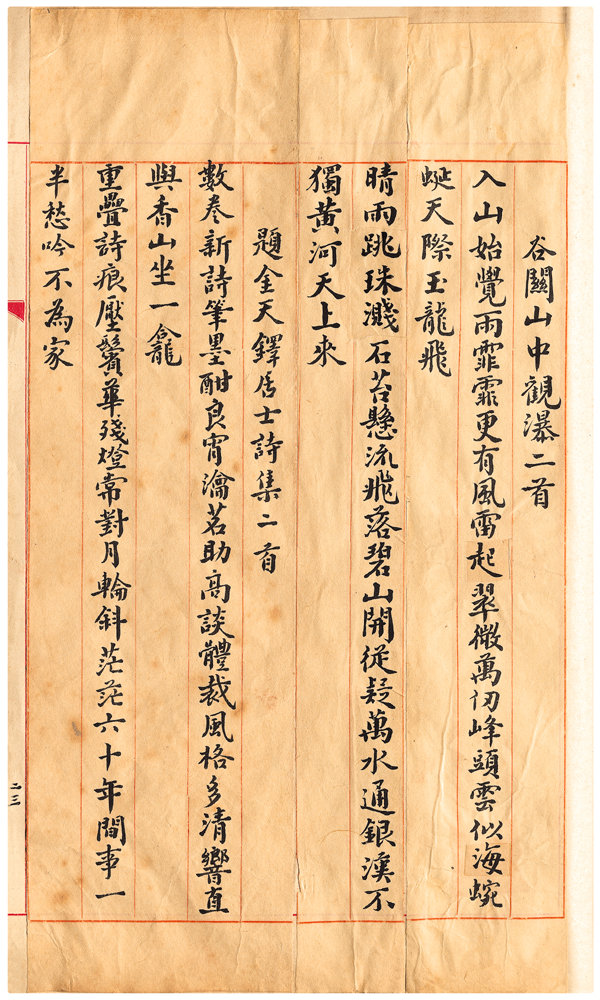 谷關山中觀瀑二首
入山始覺雨霏霏更有風雷起翠微萬仞峰頭雲似海蜿
蜒天際玉龍飛
晴雨跳珠濺石苔懸流飛落碧山開從疑萬水通銀漢不
獨黃河天上來
題金天鐸居士詩集二首
數卷新詩筆墨酣良宵瀹茗助高談體裁風格多清響直
與香山坐一龕
重疊詩痕壓鬢華殘燈常對月輪斜茫茫六十年間事一
半愁吟不為家
二三